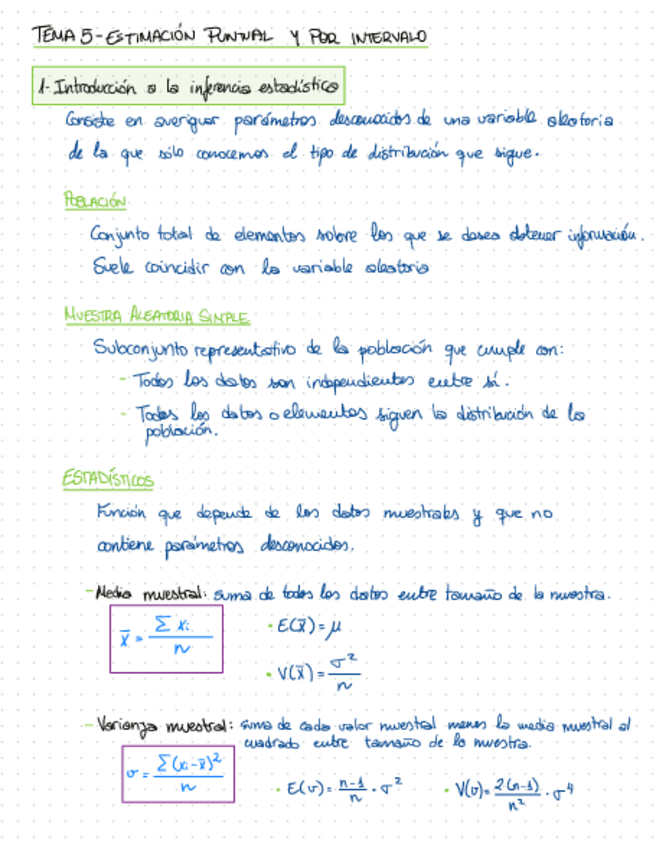 TEMA 5 - ESTIMACIÓN PUNTUAL Y POR INTERVALO
1- Introducción a la inferencia estadística
Consiste en averiguar parámetros desconocidos de una variable aleatoria
de la que sólo conocemos el tipo de distribución que sigue.
POBLACIÓN
Conjunto total de elementos sobre los que se desea obtener información.
Suele coincidir con la variable aleatoria
MUESTRA ALEATORIA SIMPLE
Subconjunto representativo de la población que cumple con:
- Todos los datos son independientes entre sí.
- Todos los datos o elementos siguen la distribución de la
población.
ESTADÍSTICOS
Función que depende de los datos muestrales y que no
contiene parámetros desconocidos.
- Media muestral: suma de todos los datos entre tamaño de la muestra.
x̄ = Σ xi / n
· E(x̄) = μ
· V(x̄) = σ² / n
- Varianza muestral: suma de cada valor muestral menos la media muestral al
cuadrado entre tamaño de la muestra.
v = Σ(xi - x̄)² / n
· E(v) = n-1 / n · σ²
· V(v) = 2(n-1) / n² · σ⁴